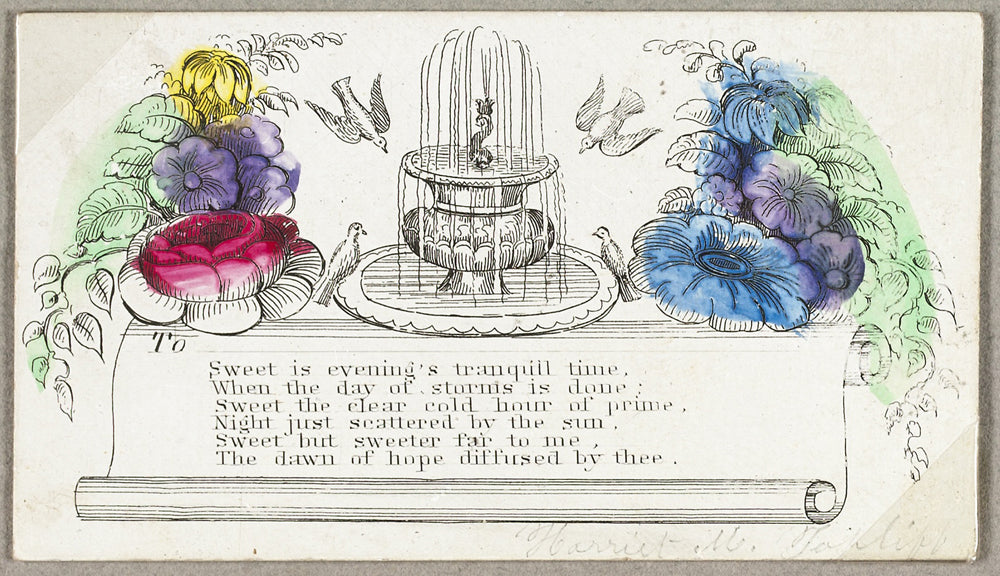 To
Sweet is evening's tranquill time,
When the day of storms is done;
Sweet the clear cold hour of prime,
Night just scattered by the sun.
Sweet but sweeter far to me,
The dawn of hope diffused by thee.
Harriet M.